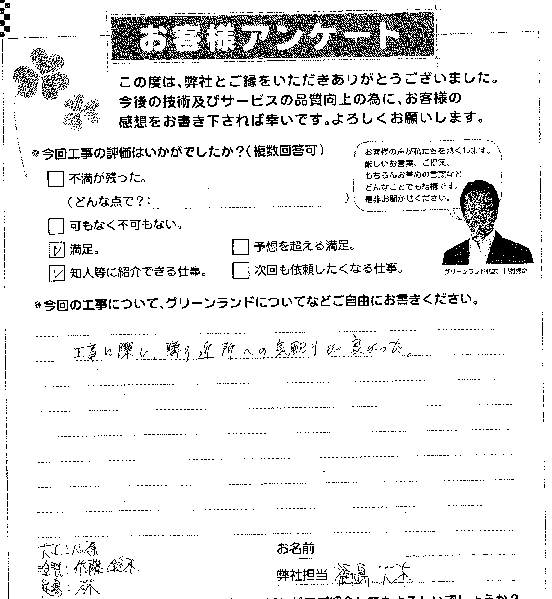 お客様アンケート
この度は、弊社とご縁をいただきありがとうございました。
今後の技術及びサービスの品質向上の為に、お客様の
感想をお書き下されば幸いです。よろしくお願いします。
※今回工事の評価はいかがでしたか?(複数回答可)
不満が残った。
(どんな点で?: )
可もなく不可もない。
満足。
予想を超える満足。
知人等に紹介できる仕事。
次回も依頼したくなる仕事。
お客様の声が私たちを熱くします。
厳しいお言葉、ご提案、
もちろんお褒めの言葉など
どんなことでも結構です。
是非お聞かせください。
グリーンランド代表
※今回の工事について、グリーンランドについてなどご自由にお書きください。
工事に際し 隣り近所への気配りが良かった。
お名前
弊社担当
佐藤 鈴木